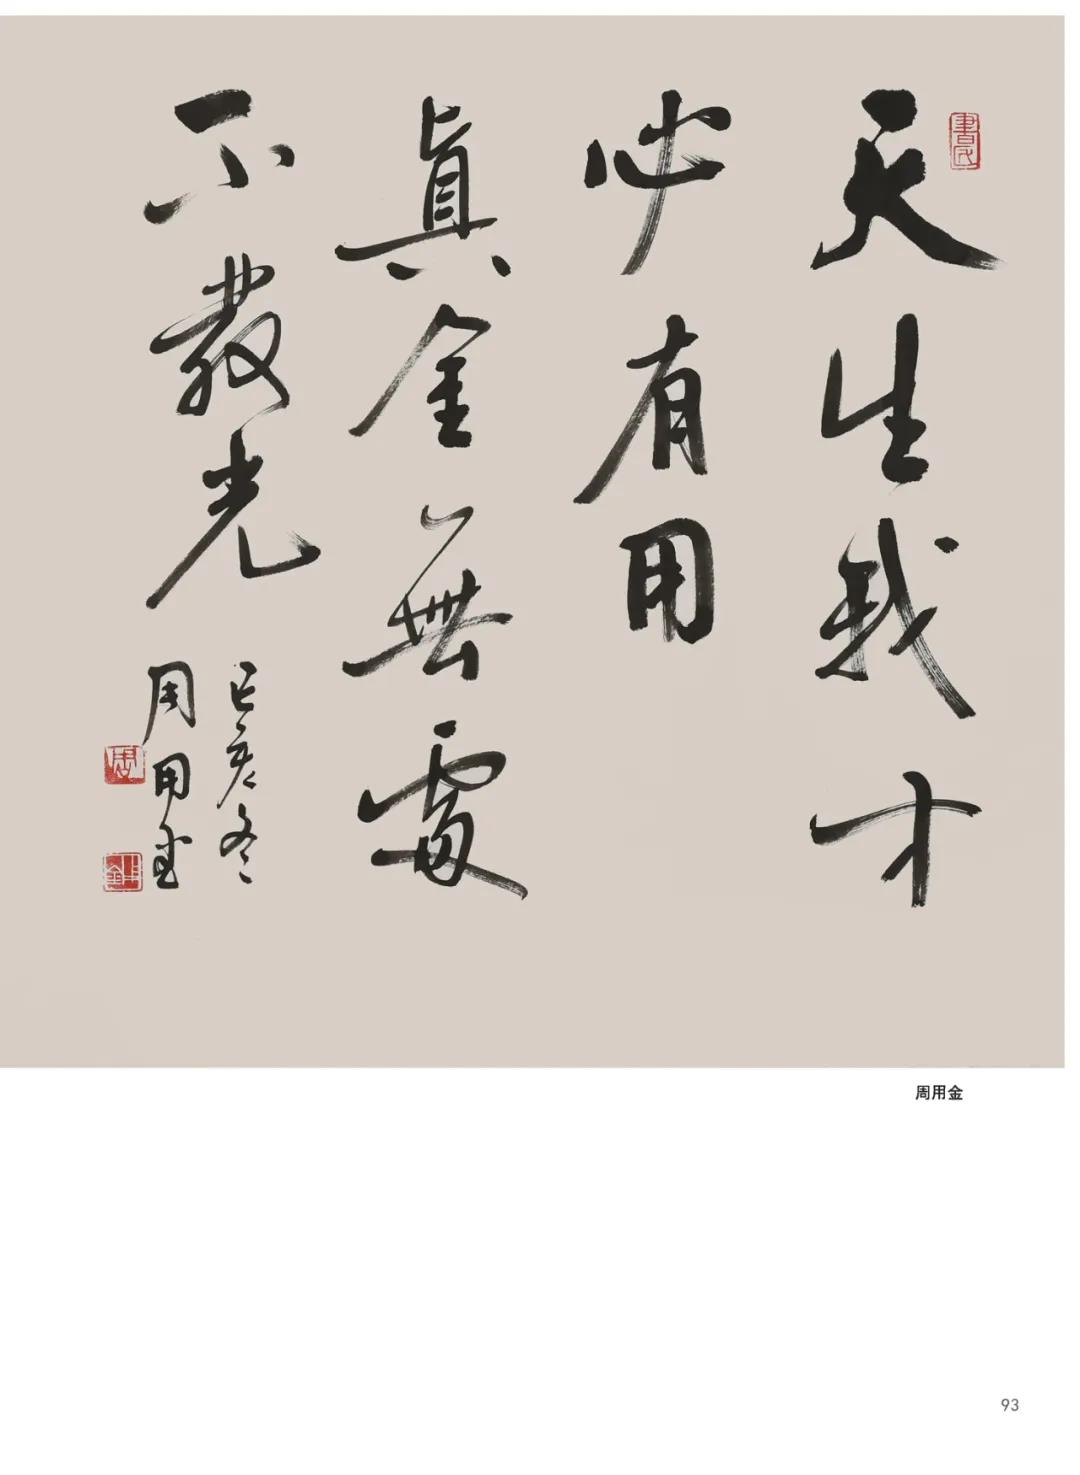 天生我才
必有用
真金無處
不發光
己亥冬
周用金
周用金
93